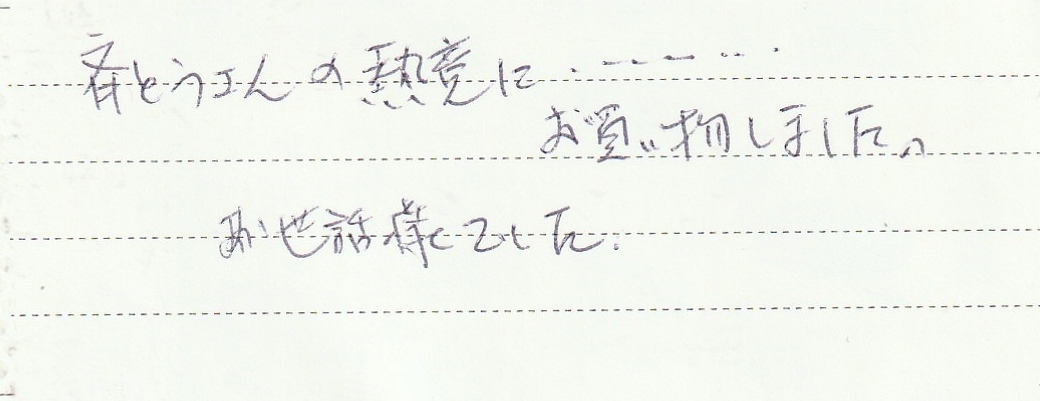 斉とうさんの熱意に......
お買い物しました。
お世話様でした.